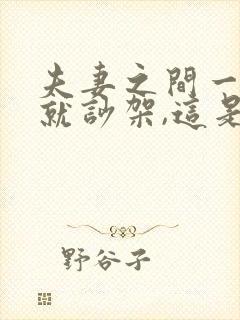 夫妻之間一
就訬架,這是
野谷子